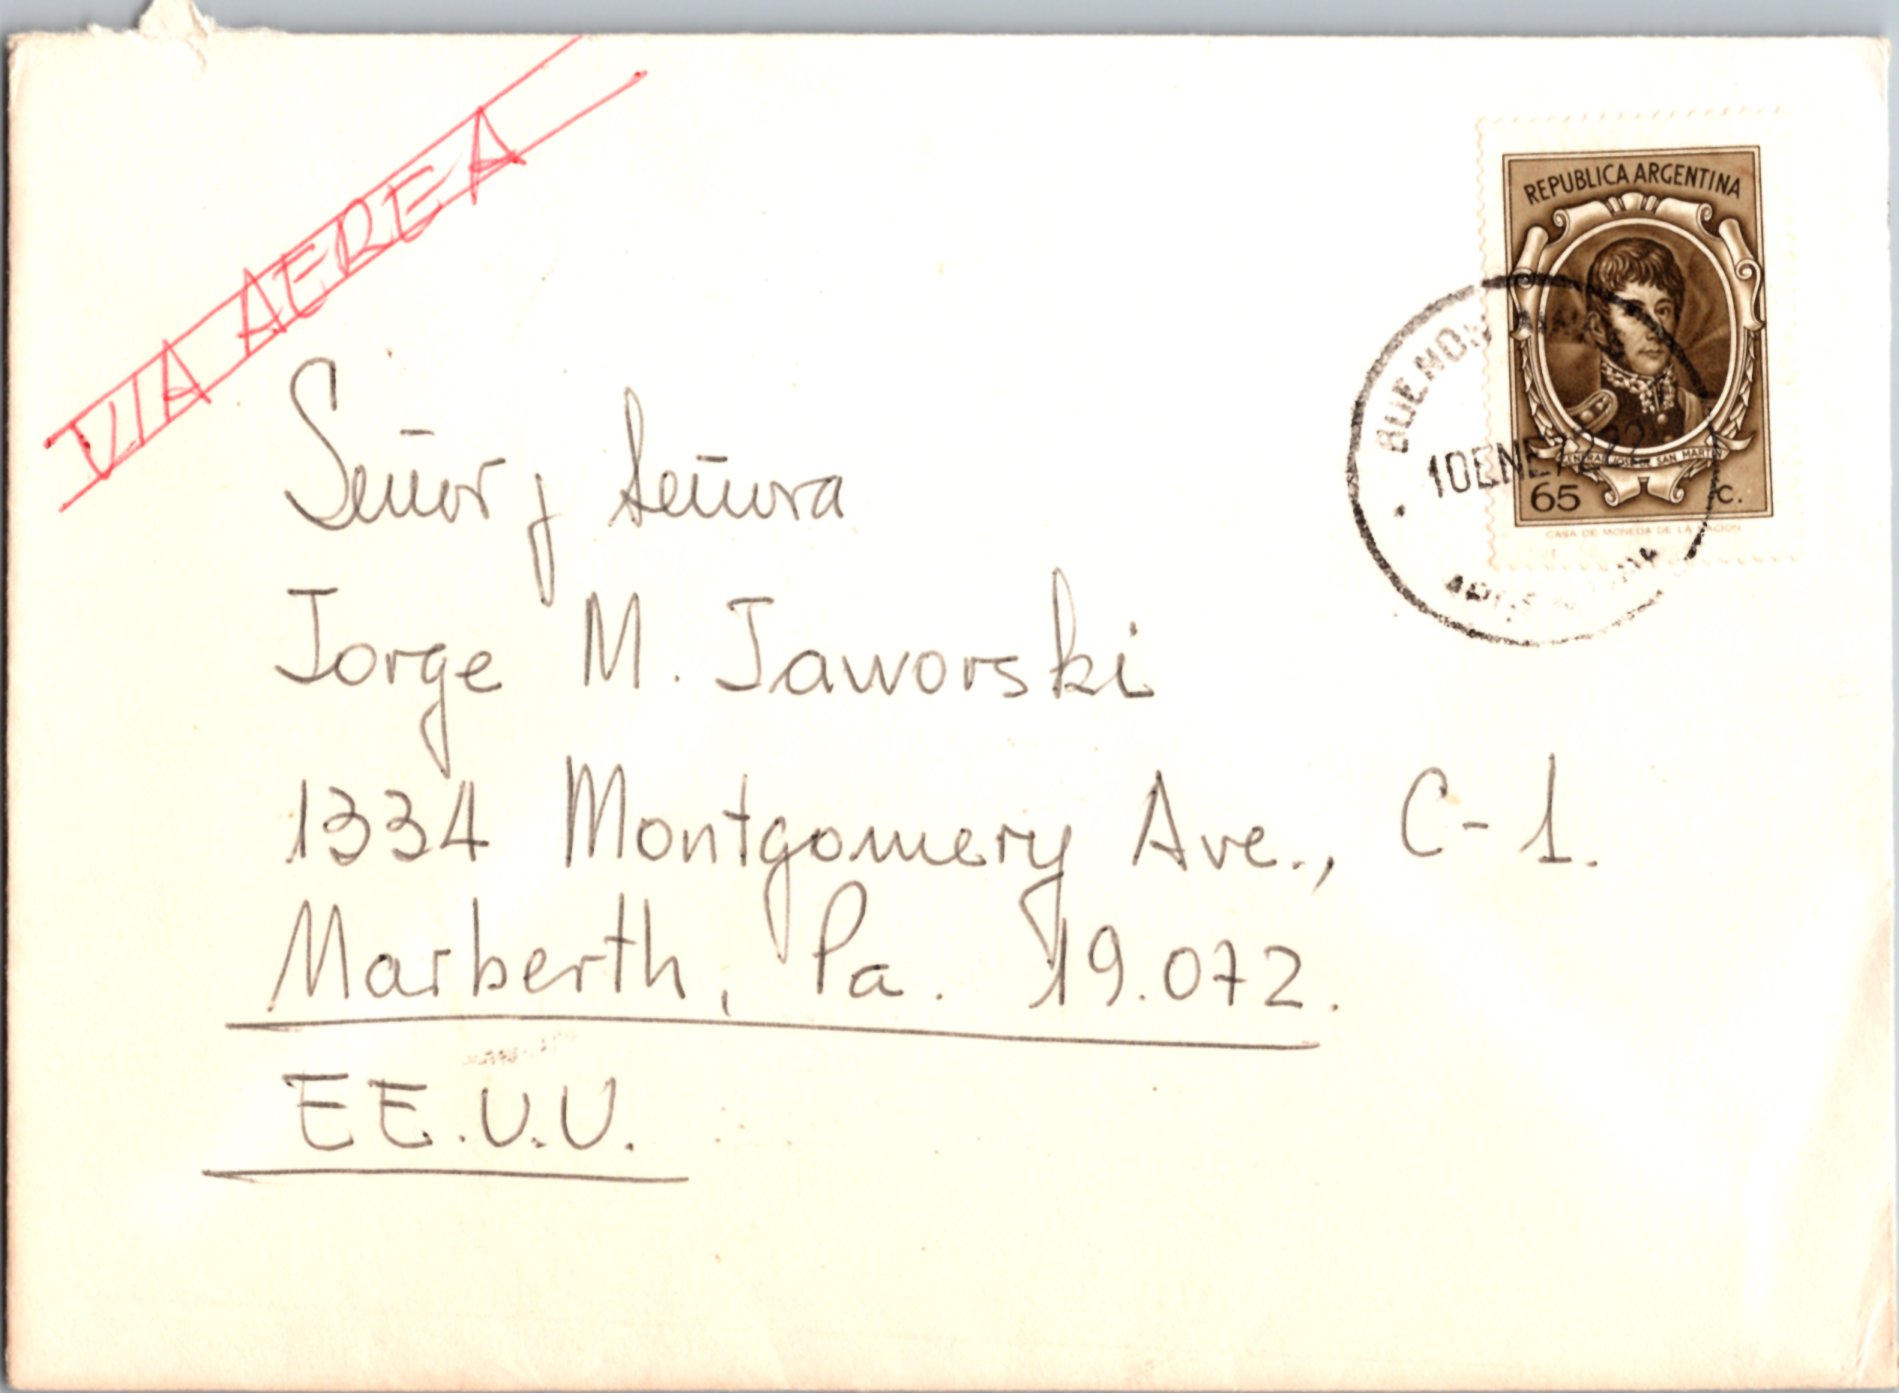 VIA AEREA
REPUBLICA ARGENTINA
GENERAL JOSE DE SAN MARTIN
65 C.
CASA DE MONEDA DE LA NACION
BUENOS
10 ENE 72
ARGENTINA
Señor y Señora
Jorge M. Jaworski
1334 Montgomery Ave., C-1.
Marberth, Pa. 19.072.
EE.U.U.